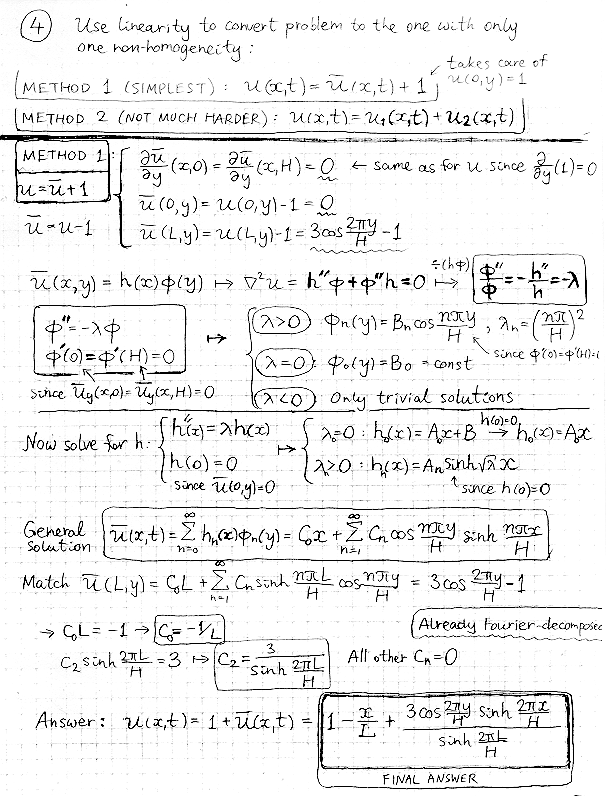 ④ Use linearity to convert problem to the one with only
one non-homogeneity:
METHOD 1 (SIMPLEST): u(x,t) = ū(x,t) + 1 ← takes care of u(0,y)=1
METHOD 2 (NOT MUCH HARDER): u(x,t) = u₁(x,t) + u₂(x,t)
METHOD 1:
u = ū + 1
ū = u - 1
∂ū/∂y (x,0) = ∂ū/∂y (x,H) = 0 ← same as for u since ∂/∂y (1) = 0
ū(0,y) = u(0,y) - 1 = 0
ū(L,y) = u(L,y) - 1 = 3cos 2πy/H - 1
ū(x,y) = h(x)φ(y) ↦ ∇²u = h″φ + φ″h = 0 ÷(hφ) ↦ φ″/φ = - h″/h = -λ
φ″ = -λφ
φ′(0) = φ′(H) = 0
since ūy(x,0) = ūy(x,H) = 0
↦
λ>0 φn(y) = Bn cos nπy/H , λn = (nπ/H)²
since φ′(0)=φ′(H)=
λ=0: φ₀(y) = B₀ = const
λ<0 Only trivial solutions
Now solve for h:
h″(x) = λh(x)
h(0) = 0
since ū(0,y)=0
↦
λ₀=0: h₀(x) = A₀x + B h(0)=0 → h₀(x) = A₀x
λ>0: hn(x) = An sinh √λ x
since h(0)=0
General solution ū(x,t) = ∞Σn=0 hn(x)φn(y) = C₀x + ∞Σn=1 Cn cos nπy/H sinh nπx/H
Match ū(L,y) = C₀L + ∞Σn=1 Cn sinh nπL/H cos nπy/H = 3cos 2πy/H - 1
→ C₀L = -1 → C₀ = -1/L
Already Fourier-decompose
C₂ sinh 2πL/H = 3 ↦ C₂ = 3/sinh 2πL/H All other Cn = 0
Answer: u(x,t) = 1 + ū(x,t) = 1 - x/L + 3cos 2πy/H sinh 2πx/H / sinh 2πL/H
FINAL ANSWER